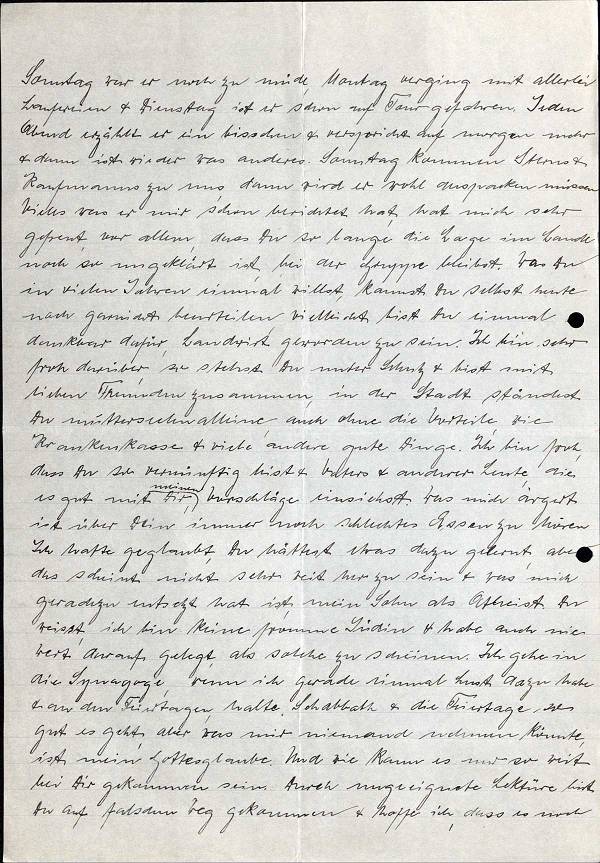 Sonntag war er noch zu müde, Montag verging mit allerlei
Laufereien & Dienstag ist er schon auf Tour gefahren. Jeden
Abend erzählt er ein bisschen & verspricht auf morgen mehr
& dann ist wieder was anderes. Samstag kommen Sterns &
Kaufmanns zu uns, dann wird er wohl auspacken müssen
Vieles was er mir schon berichtet hat, hat mich sehr
gefreut vor allem, dass Du so lange die Lage im Lande
noch so ungeklärt ist, bei der Gruppe bleibst. Was Du
in vielen Jahren einmal willst, kannst Du selbst heute
noch garnicht beurteilen, vielleicht bist Du einmal
dankbar dafür, Landwirt geworden zu sein. Ich bin sehr
froh darüber, so stehst Du unter Schutz & bist mit
lieben Freunden zusammen, in der Stadt ständest
Du mutterseelenalleine, auch ohne die Vorteile, die
Krankenkasse & viele andere gute Dinge. Ich bin froh,
dass Du so vernünftig bist & Vaters & anderer Leute, die
es gut mit Dir meinen, Vorschläge einsiehst. Was mich ärgert
ist über Dein immer noch schlechtes Essen zu hören
Ich hatte geglaubt, Du hättest etwas dazu gelernt, aber
das scheint nicht sehr weit her zu sein & was mich
geradezu entsetzt hat ist, mein Sohn als Atheist. Du
weisst, ich bin keine fromme Jüdin & habe auch nie
Wert darauf gelegt als solche zu scheinen. Ich gehe in
die Synagoge, wenn ich gerade einmal Lust dazu habe
& an den Feiertagen, halte Schabbath & die Feiertage, so
gut es geht, aber was mir niemand nehmen könnte,
ist mein Gottesglaube. Und wie kann es nur so weit
bei Dir gekommen sein. Durch ungeeignete Lektüre bist
Du auf falschem Weg gekommen & hoffe ich, dass es noch